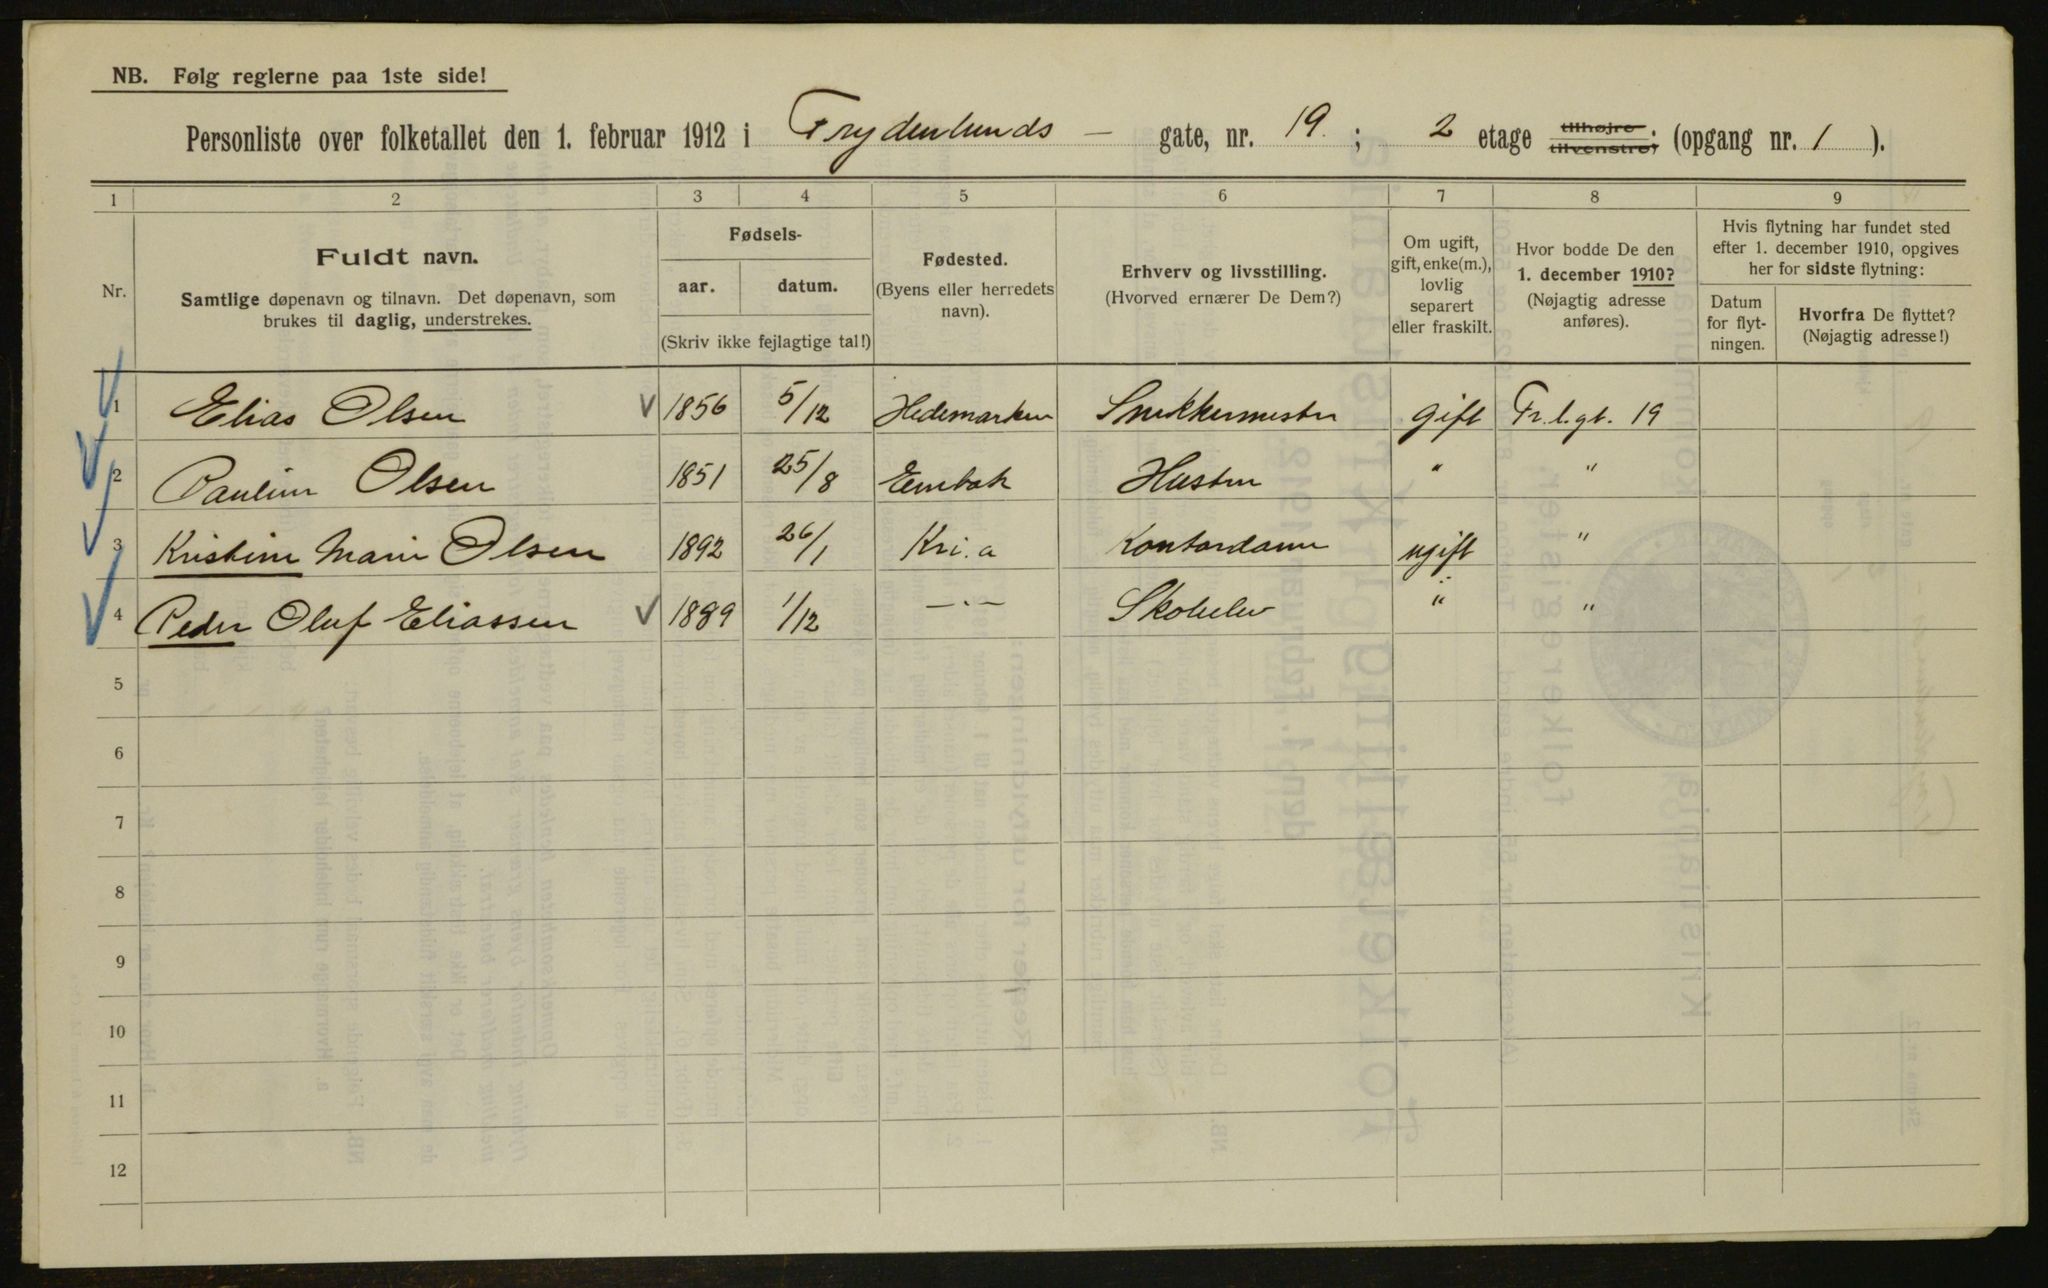 NB. Følg reglerne paa 1ste side!
Personliste over folketallet den 1. februar 1912 i Frydenlunds – gate, nr. 19. ; 2 etage tilhøjre tilvenstre; (opgang nr. 1 ).
1 2 3 4 5 6 7 8 9
Nr.
Fuldt navn.
Samtlige døpenavn og tilnavn. Det døpenavn, som
brukes til daglig, understrekes.
Fødsels-
aar. datum.
(Skriv ikke fejlagtige tal!)
Fødested.
(Byens eller herredets
navn).
Erhverv og livsstilling.
(Hvorved ernærer De Dem?)
Om ugift,
gift, enke(m.),
lovlig
separert
eller fraskilt.
Hvor bodde De den
1. december 1910?
(Nøjagtig adresse
anføres).
Hvis flytning har fundet sted
efter 1. december 1910, opgives
her for sidste flytning:
Datum
for flyt-
ningen.
Hvorfra De flyttet?
(Nøjagtig adresse!)
1 Elias Olsen 1856 5/12 Hedemarken Snekkermester gift Fr.l.gt. 19
2 Pauline Olsen 1851 25/8 Hustru " "
3 Kristine Marie Olsen 1892 26/1 Kri.a Kontordame ugift "
4 Peder Oluf Eliassen 1889 1/12 —"— Skoleelev " "
5
6
7
8
9
10
11
12